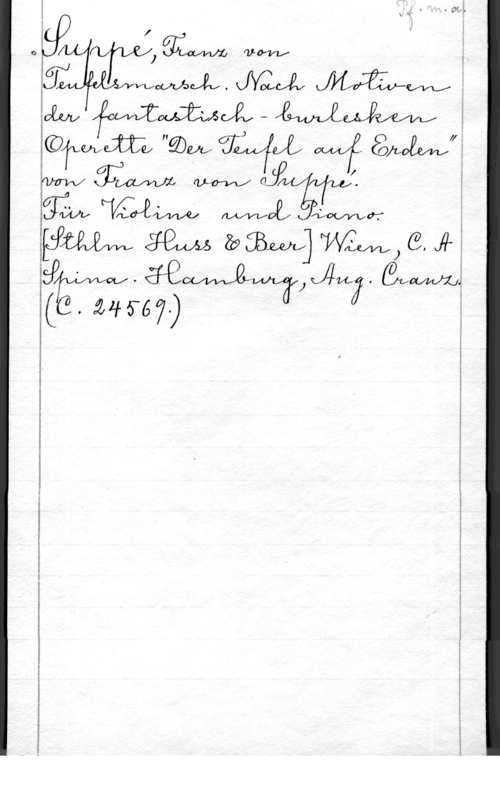 Pf. m. a.
Suppé, Franz von
Teufelsmarsch. Nach Motiven
der fantastisch-burlesken
Operette "Der Teufel auf Erden"
von Franz von Suppé.
Für Violine und Piano.
[Sthlm Huss & Beer] Wien, C. A
Spina. Hamburg, Aug. Cranz.
(C. 24567.)